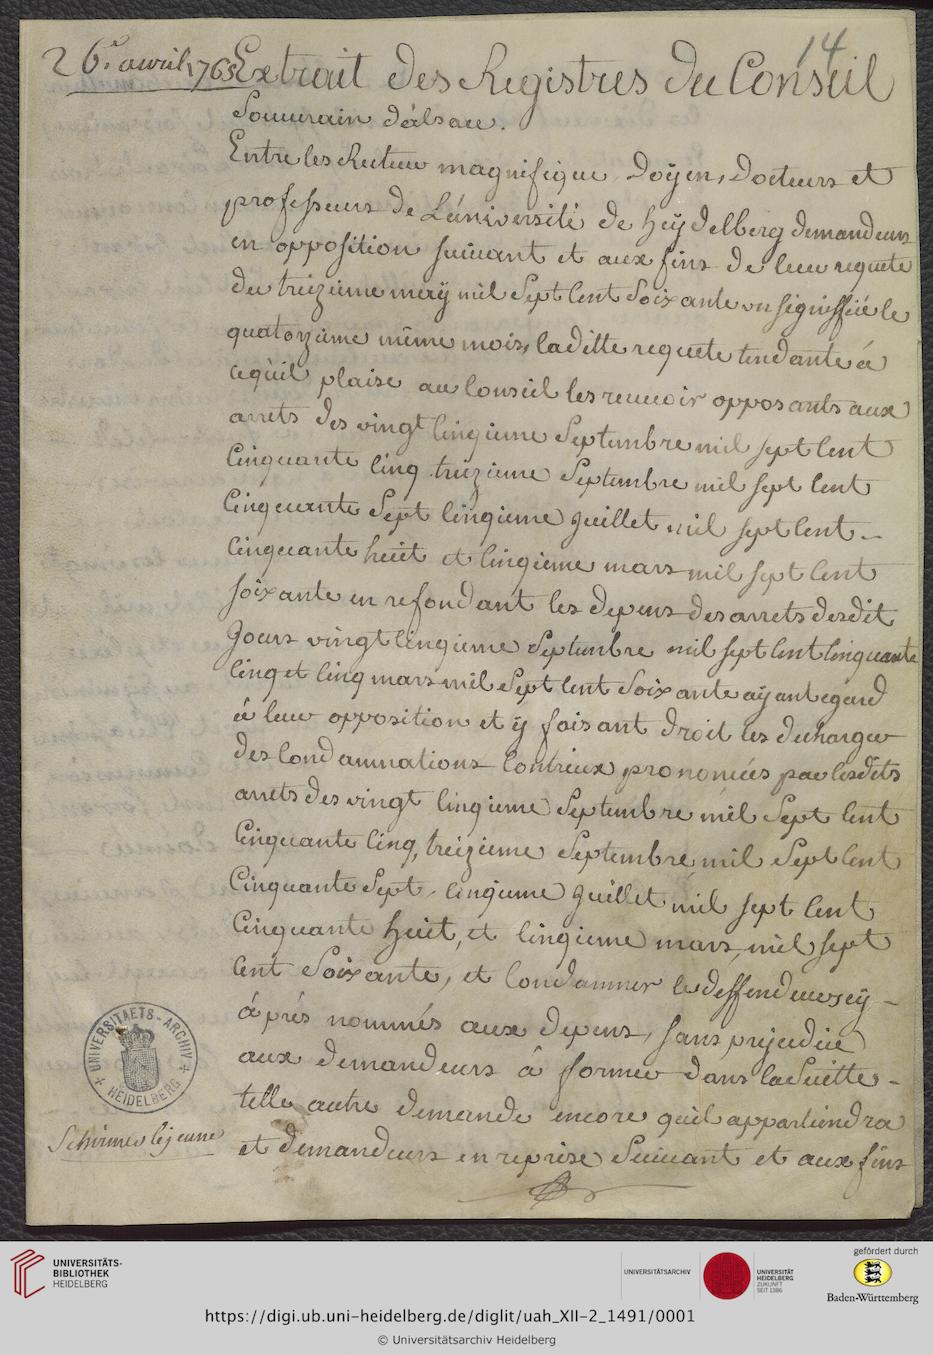 14
26e. avril 1765
Extrait des Registres du Conseil
Souuerain d'alsace.
Entre les Recteur magnifique, Doÿen, Docteurs et
professeurs de L'éniversité de heÿdelberg demandeurs
en opposition suiuant et aux fins de leur requete
du treizieme maÿ mil Sept Cent Soixante un signiffiée le
quatorzieme même mois, laditte requete tendante á
ceqúil plaise au Conseil les receuoir opposants aux
arrets des vingt Cinqieme Septembre mil sept Cent
Cinquante Cinq treizieme Septembre mil sept Cent
Cinquante Sept Cinqieme Juillet mil sept Cent
Cinquante huit et Cinqieme mars mil sept Cent
soixante en refondant les depens des arrets desdit
Jours vingt Cinqieme Septembre mil sept Cent Cinquante
Cinq et Cinq mars mil Sept Cent Soixante aÿant egard
á leur opposition et ÿ faisant droit les decharger
des Condamnations Contreux prononcées par lesdits
arrets des vingt Cinqieme Septembre mil Sept Cent
Cinquante Cinq, treizieme Septembre mil Sept Cent
Cinquante Sept, Cinqieme Juillet mil sept Cent
Cinquante huit, et Cinqieme mars, mil sept
Cent Soixante, et Condamner les deffendeurs cÿ-
áprés nommés aux depens, sans prejudice
aux demandeurs á former dans la Suitte
telle autre demande encore quil appartiendra
et demandeurs en reprise Suiuant et aux fins
UNIVERSITAETS-ARCHIV
HEIDELBERG
Schirmer lejeune
UNIVERSITÄTS-
BIBLIOTHEK
HEIDELBERG
UNIVERSITÄTSARCHIV
UNIVERSITÄT
HEIDELBERG
ZUKUNFT
SEIT 1386
gefördert durch
Baden-Württemberg
https://digi.ub.uni-heidelberg.de/diglit/uah_XII-2_1491/0001
© Universitätsarchiv Heidelberg